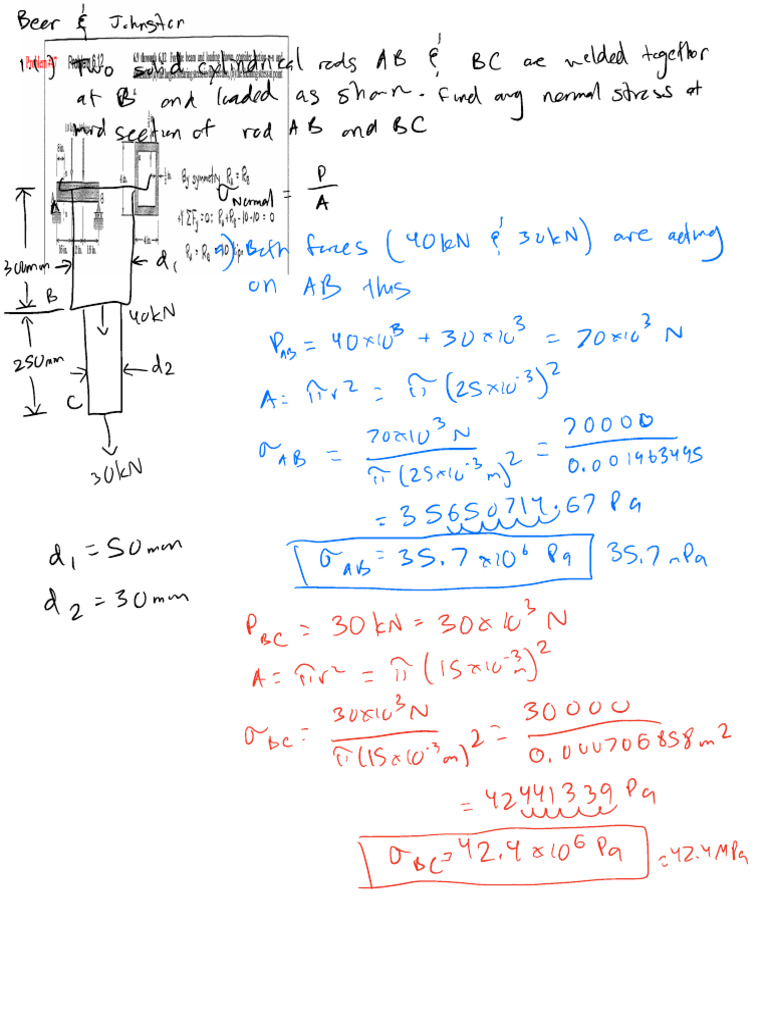 Beer & Johnston
1.1) Two solid cylindrical rods AB & BC are welded together
at B and loaded as shown. Find avg normal stress at
mid section of rod AB and BC
By symmetry
σ Normal = P / A
+↑ΣFy=0:
a) Both forces (40kN & 30kN) are acting
on AB thus
A
300mm
d1
B
40kN
250mm
d2
C
30kN
d1 = 50mm
d2 = 30mm
P_AB = 40×10³ + 30×10³ = 70×10³ N
A = πr² = π(25×10⁻³)²
σ_AB = 70×10³ N / π(25×10⁻³ m)² = 70000 / 0.001963495
= 35650714.67 Pa
σ_AB = 35.7×10⁶ Pa 35.7 mPa
P_BC = 30kN = 30×10³ N
A = πr² = π(15×10⁻³ m)²
σ_BC = 30×10³ N / π(15×10⁻³ m)² = 30000 / 0.000706858 m²
= 42441339 Pa
σ_BC = 42.4×10⁶ Pa = 42.4 MPa